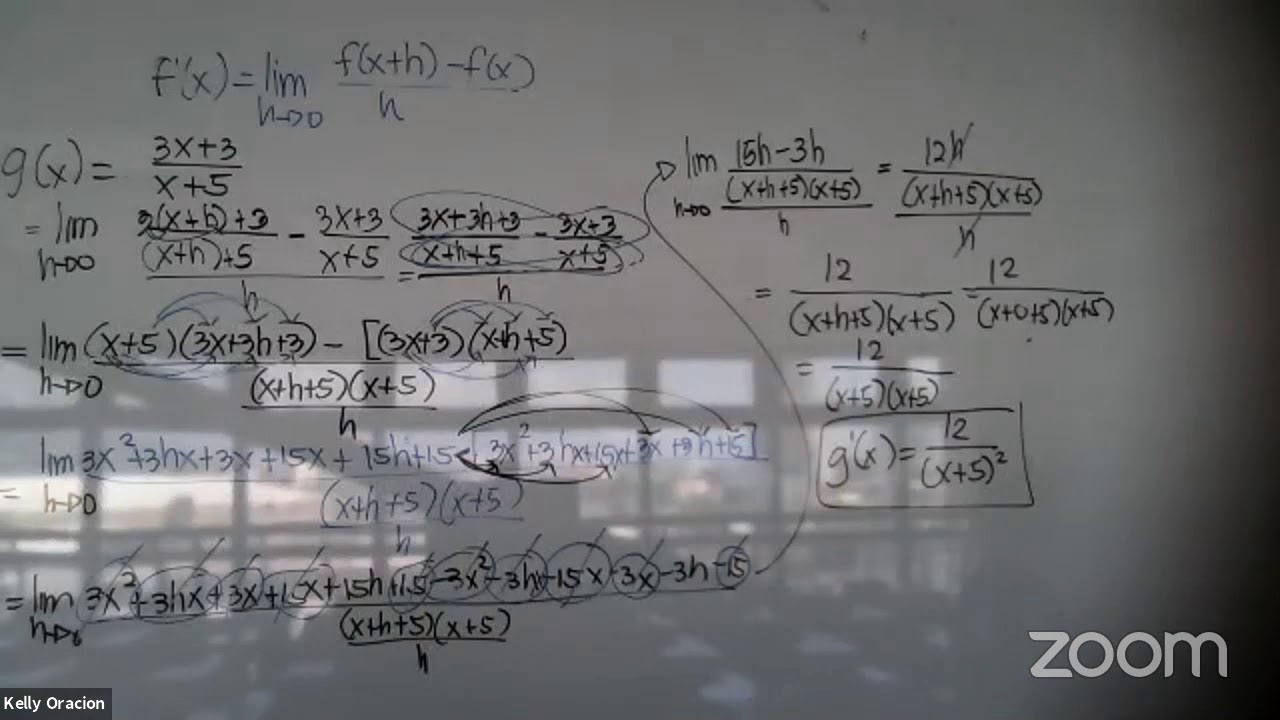 f'(x) = lim h→0 f(x+h) - f(x) / h
g(x) = 3x+3 / x+5
= lim h→0 3(x+h)+3 / (x+h)+5 - 3x+3 / x+5 / h = 3x+3h+3 / x+h+5 - 3x+3 / x+5 / h
= lim h→0 (x+5)(3x+3h+3) - [(3x+3)(x+h+5) / (x+h+5)(x+5) / h
= lim h→0 3x²+3hx+3x+15x+15h+15 - [3x²+3hx+15x+3x+3h+15] / (x+h+5)(x+5) / h
= lim h→0 3x²+3hx+3x+15x+15h+15-3x²-3h-15x-3x-3h-15 / (x+h+5)(x+5) / h
lim h→0 15h-3h / (x+h+5)(x+5) / h = 12h / (x+h+5)(x+5) / h
= 12 / (x+h+5)(x+5) 12 / (x+0+5)(x+5)
= 12 / (x+5)(x+5)
g'(x) = 12 / (x+5)²
zoom
Kelly Oracion